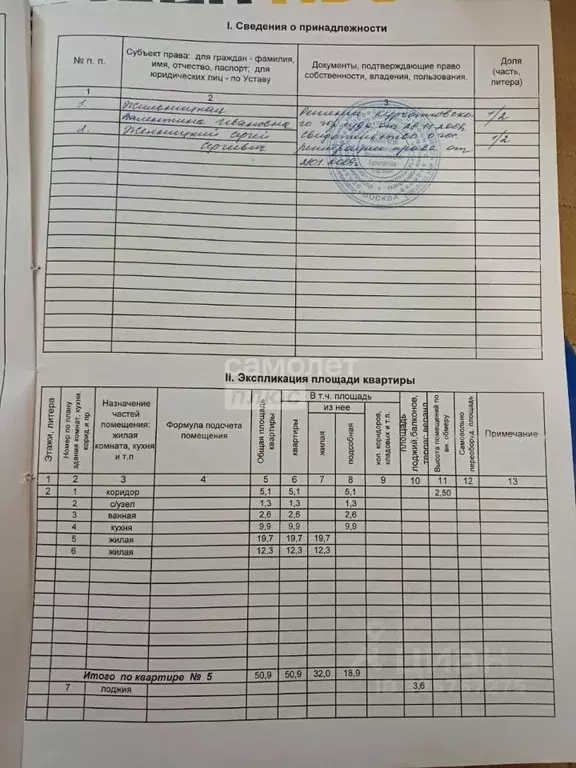 I. Сведения о принадлежности
№ п. п.
Субъект права: для граждан - фамилия,
имя, отчество, паспорт; для
юридических лиц - по Уставу
Документы, подтверждающие право
собственности, владения, пользования.
Доля
(часть,
литера)
1 2 3
1.
Валентина Ивановна
1/2
2. Сергей
Сергеевич
свидетельство о гос.
регистрации права от
1/2
МОСКВА
самолет
плюс
II. Экспликация площади квартиры
Этажи, литера
Номер по плану
здания комнат, кухни,
корид.и пр.
Назначение
частей
помещения:
жилая
комната, кухня
и т.п
Формула подсчета
помещения
Общая площадь
квартиры
В т.ч. площадь
квартиры
из нее
жилая
подсобная
хол. коридоров,
кладовых и т.п.
площадь
лоджий,балконов,
террас,веранд
Высота помещений по
вн. обмеру
Самовольно
переоборуд. площадь
Примечание
1 2 3 4 5 6 7 8 9 10 11 12 13
2 1 коридор 5,1 5,1 5,1 2,50
2 с/узел 1,3 1,3 1,3
3 ванная 2,6 2,6 2,6
4 кухня 9,9 9,9 9,9
5 жилая 19,7 19,7 19,7
6 жилая 12,3 12,3 12,3
Итого по квартире № 5 50,9 50,9 32,0 18,9
7 лоджия 3,6
циан